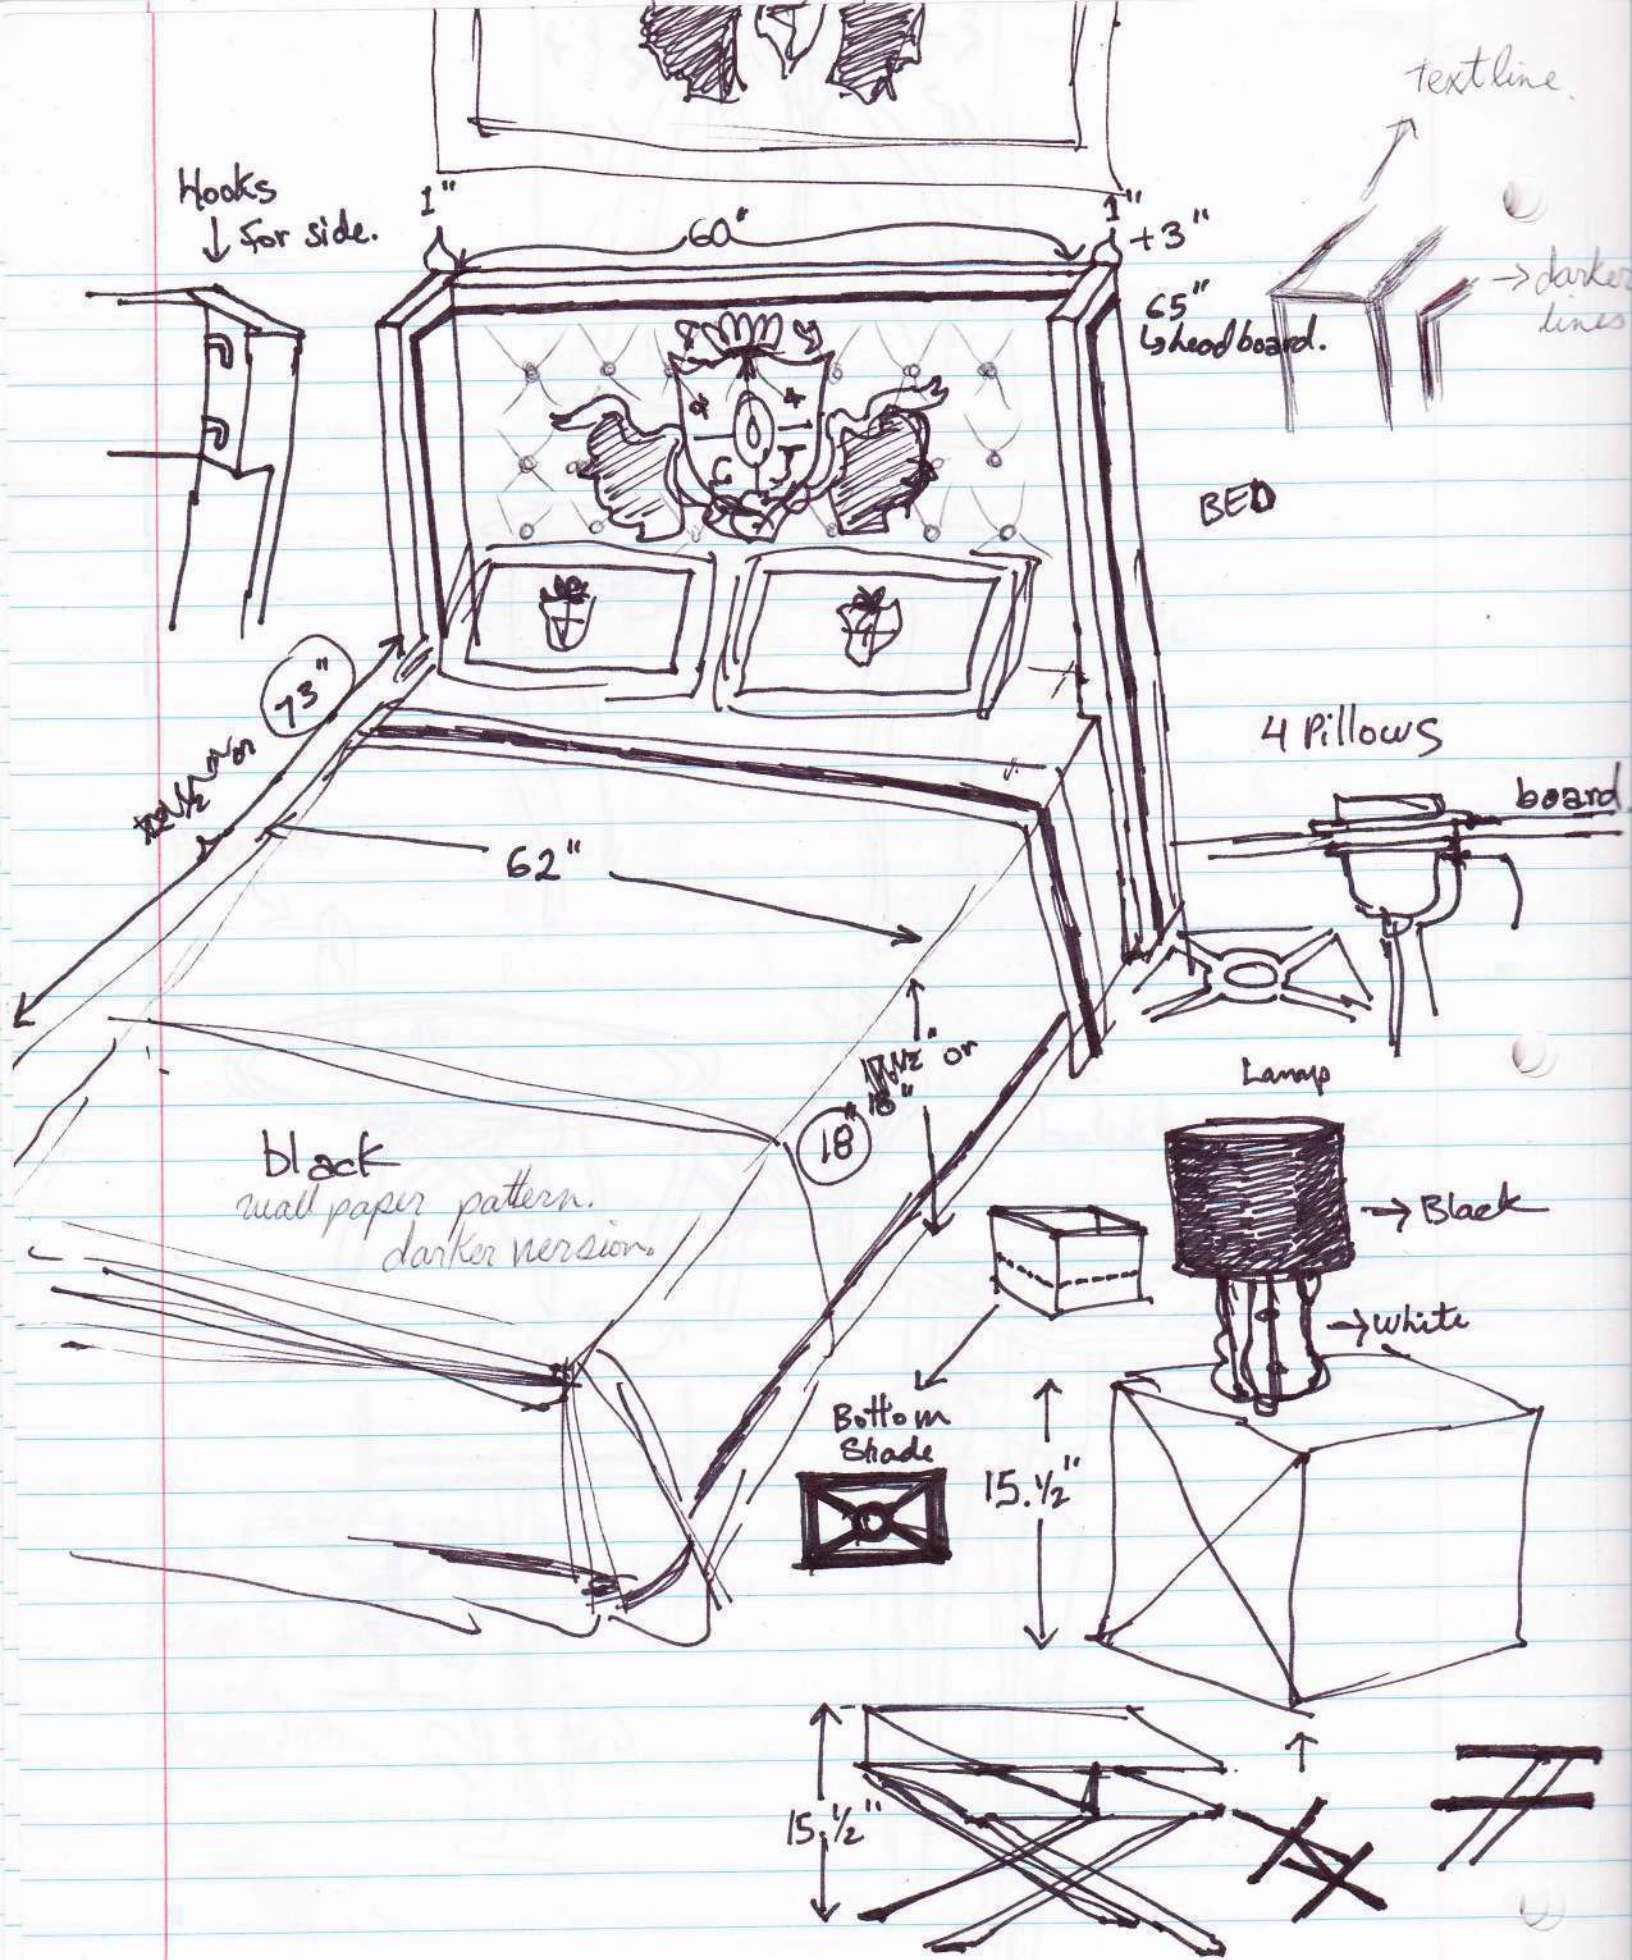 textline.
Hooks
↓ for side.
1"
60"
1"
+3"
65"
↳headboard.
→darker
lines
BED
73"
4 Pillows
board
62"
" or
18"
18"
Lamp
black
wall paper pattern.
darker version.
→Black
→White
Bottom
Shade
15.½"
15.½"